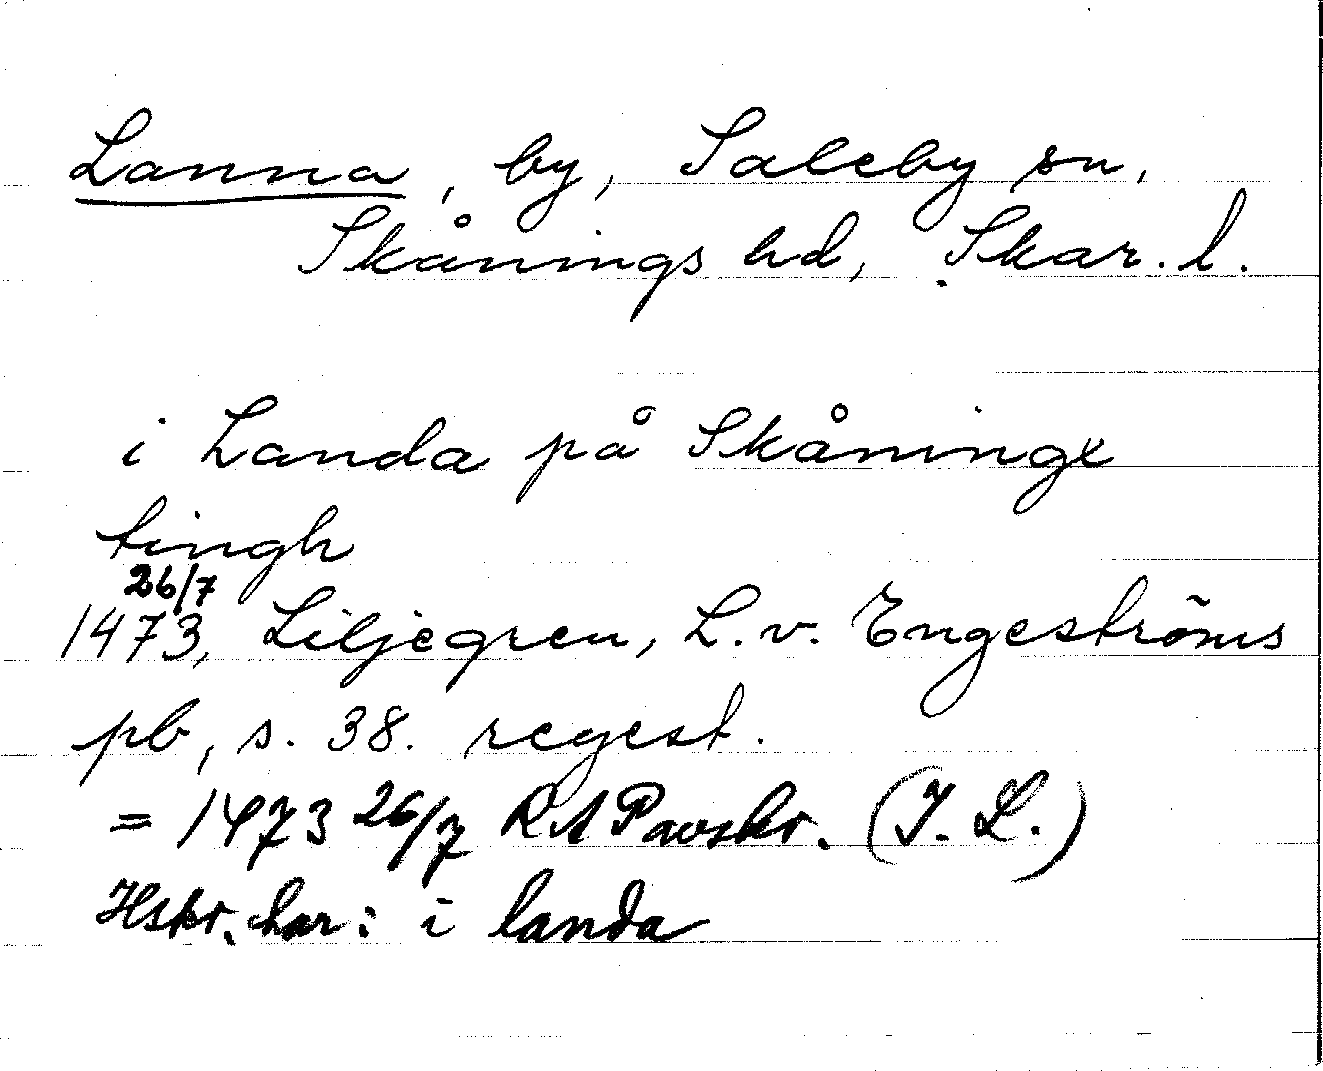 Lanna, by, Saleby sn,
Skånings hd, Skar. l.
i Landa på Skåningx
tingh
26/7
1473, Liljegren, L. v. Engeströms
pb, s. 38. regest.
= 1473 26/7 RA Pavskr. (J. L.)
Hskr. har: i landa